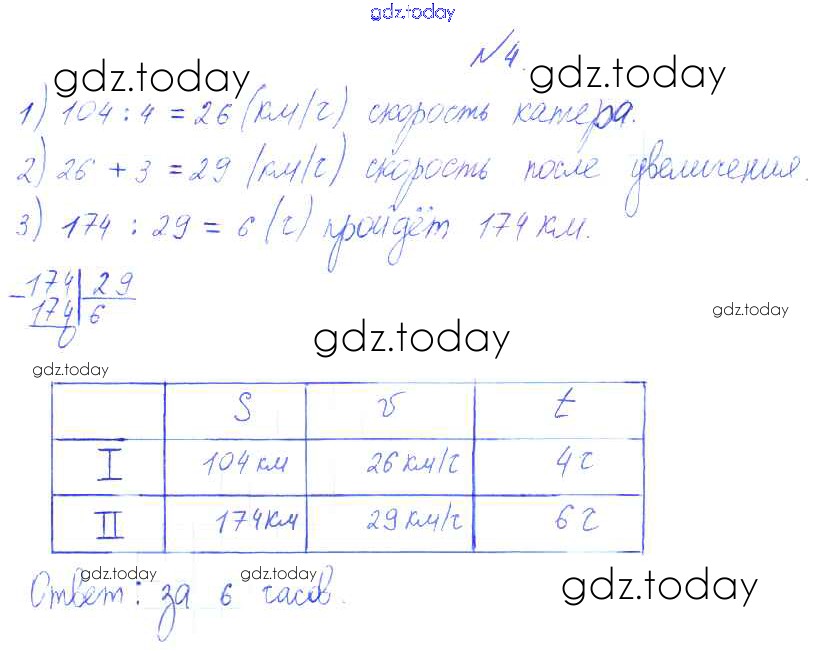 gdz.today
№4.
gdz.today gdz.today
1) 104 : 4 = 26 (км/ч) скорость катера.
2) 26 + 3 = 29 (км/ч) скорость после увеличения.
3) 174 : 29 = 6 (ч) пройдёт 174 км.
- 174 | 29
174 | 6
0
gdz.today
gdz.today
gdz.today
S v t
I 104 км 26 км/ч 4 ч
II 174 км 29 км/ч 6 ч
gdz.today gdz.today gdz.today
Ответ: за 6 часов.